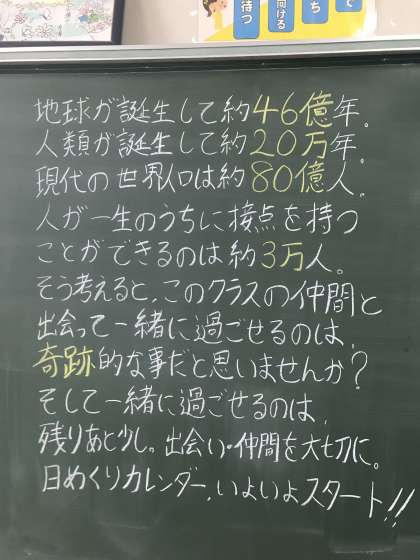 待つ
向ける
ち
で
地球が誕生して約46億年。
人類が誕生して約20万年。
現代の世界人口は約80億人。
人が一生のうちに接点を持つ
ことができるのは約3万人。
そう考えると、このクラスの仲間と
出会って一緒に過ごせるのは、
奇跡的な事だと思いませんか?
そして一緒に過ごせるのは、
残りあと少し。出会い・仲間を大切に。
日めくりカレンダー、いよいよスタート!!